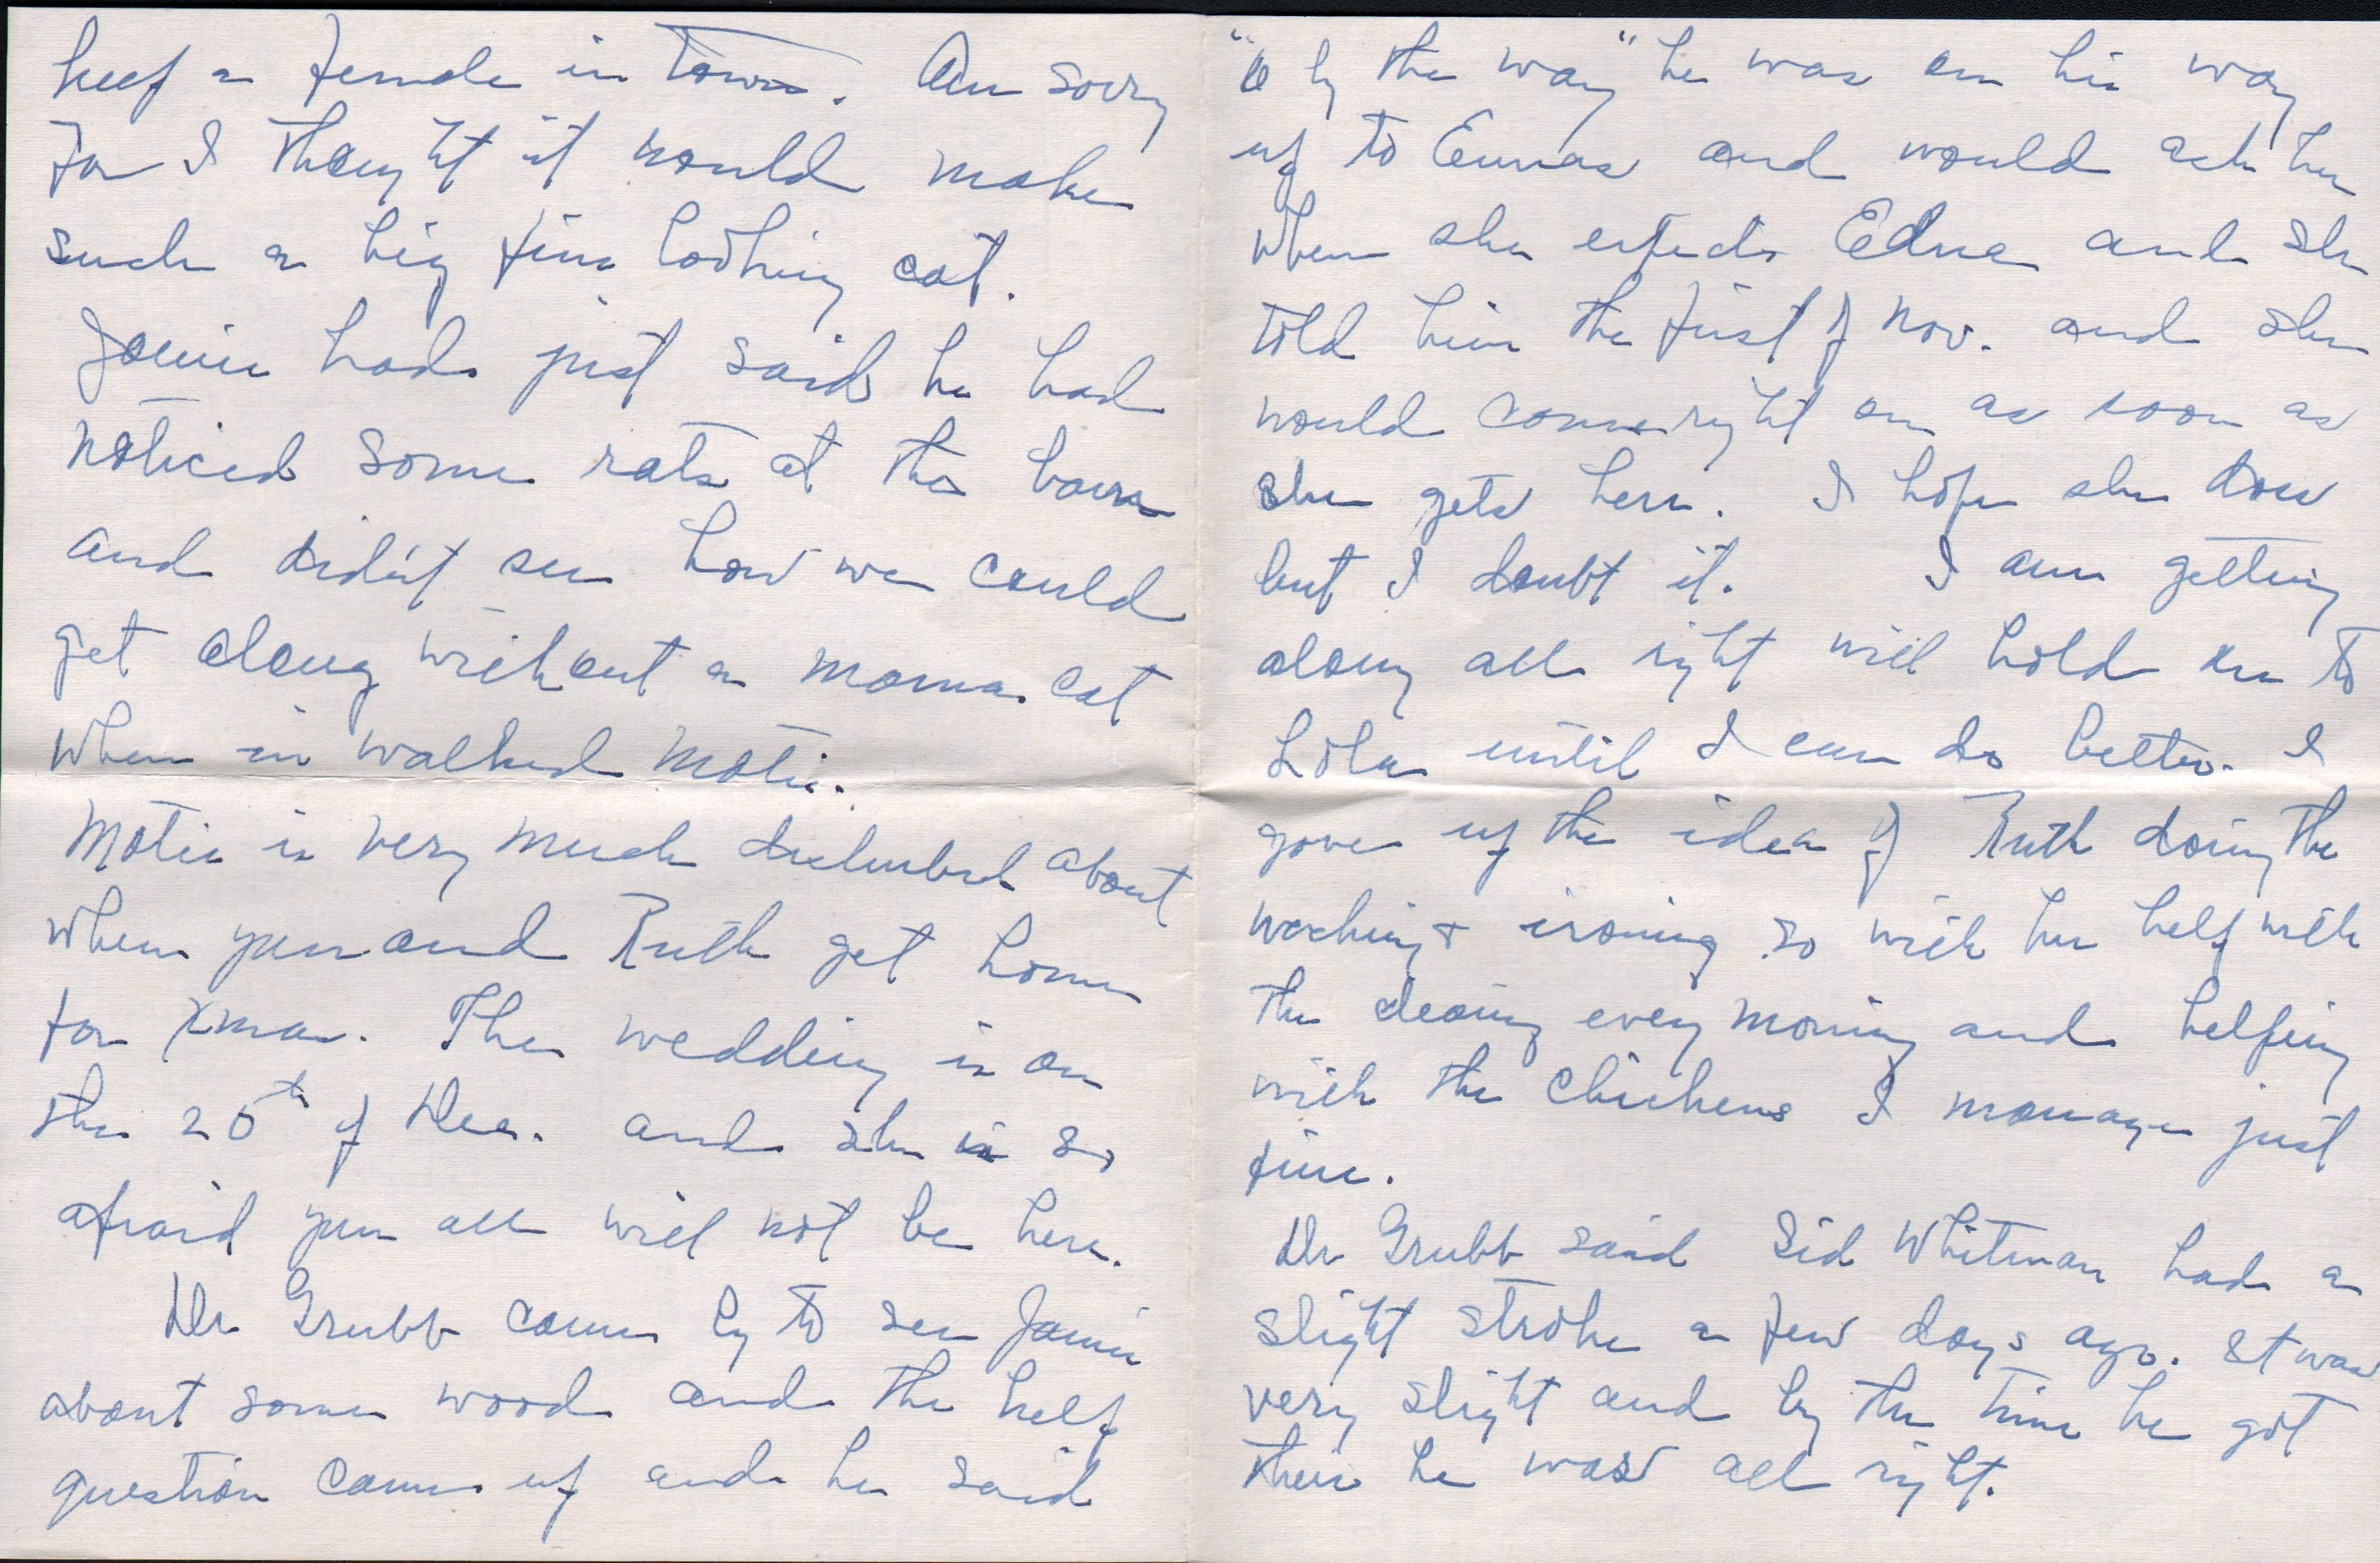 keep a female in Town. Am sorry
for I thought it would make
such a big fine looking cat.
Jamie had just said he had
noticed some rats at the barn
and didn't see how we could
get along without a mama cat
when in walked Motie.
Motie is very much disturbed about
when you and Ruth get home
for Xmas. The wedding is on
the 20th of Dec. and she is so
afraid you all will not be here.
Dr Grubb came by to see Jamie
about some wood and the help
question came up and he said
"O by the way" he was on his way
up to Emmas and would ask her
when she expects Edna and she
told him the first of Nov. and she
would come right on as soon as
she gets here. I hope she does
but I doubt it. I am getting
along all right will hold on to
Lola until I can do better. I
gave up the idea of Ruth doing the
washing & ironing so with her help with
the cleaing every morning and helping
with the chickens I manage just
fine.
Dr Grubb said Sid Whitman had a
slight stroke a few days ago. It was
very slight and by the time he got
their he was all right.